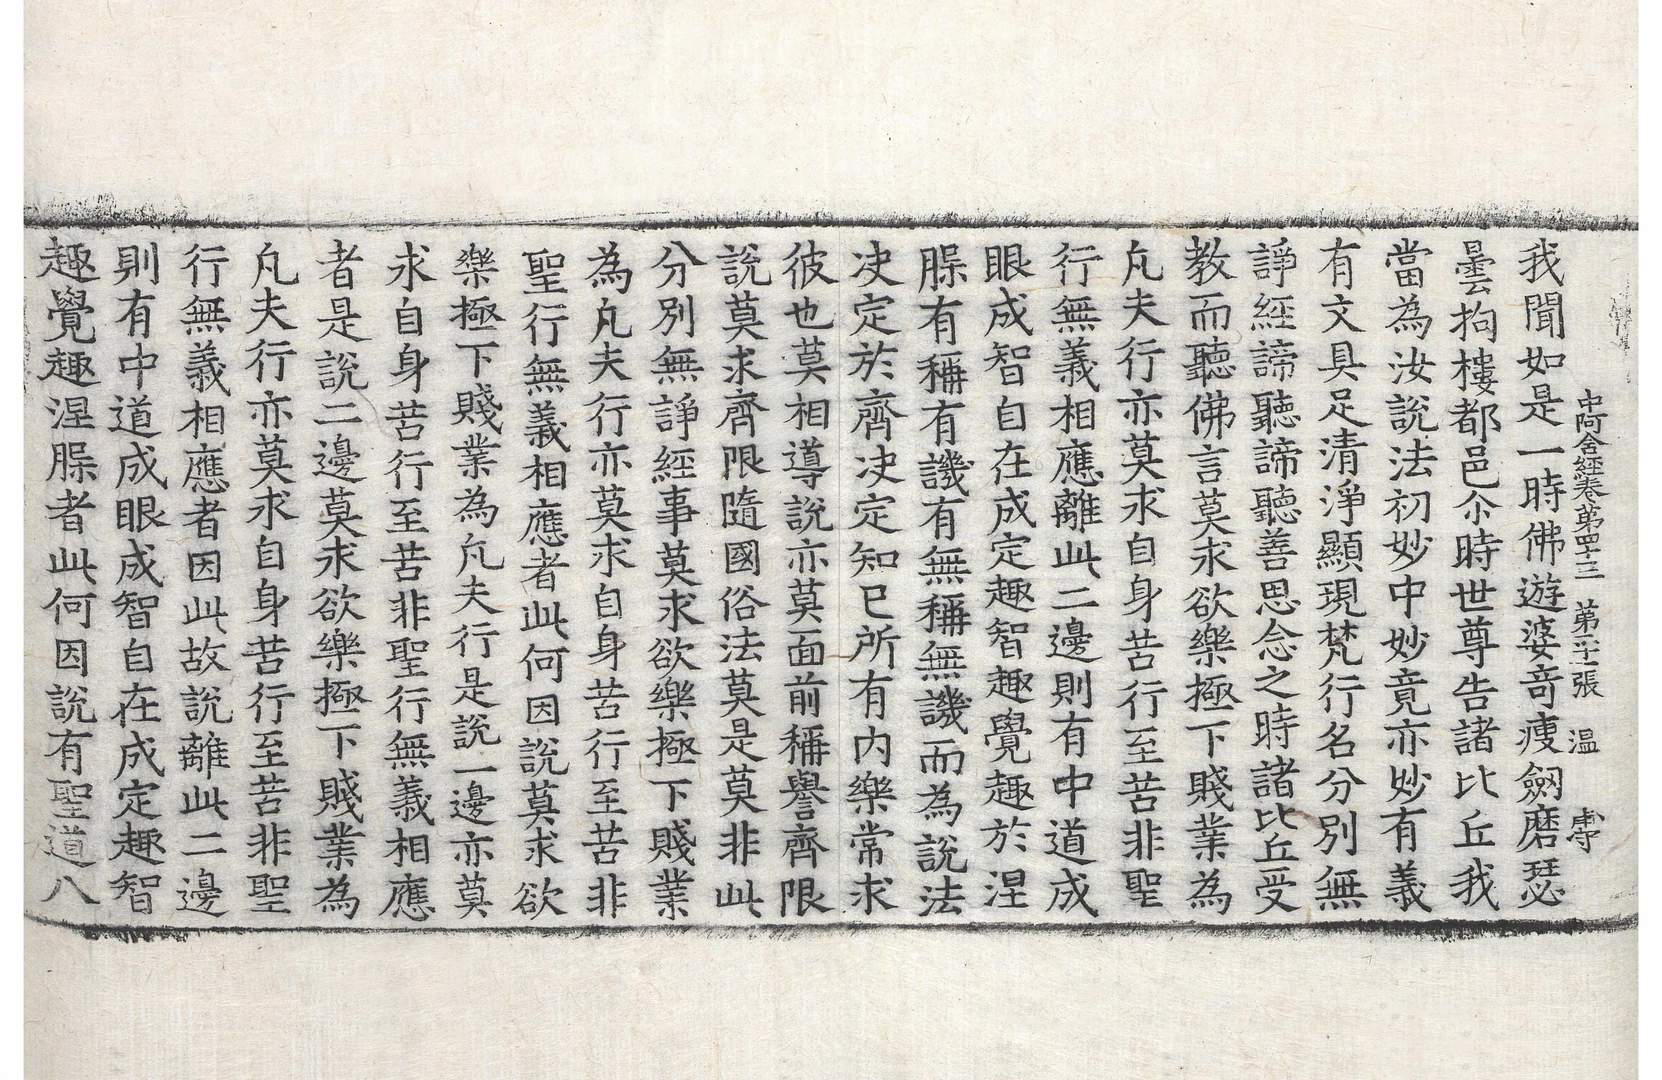 中阿含經卷第四十三 第 張 温
我聞如是一時佛遊婆奇瘦劔磨瑟
曇拘樓都邑尒時世尊告諸比丘我
當為汝說法初妙中妙竟亦妙有義
有文具足清淨顯現梵行名分別無
諍經諦聽諦聽善思念之時諸比丘受
教而聽佛言莫求欲樂極下賤業為
凡夫行亦莫求自身苦行至苦非聖
行無義相應離此二邊則有中道成
眼成智自在成定趣智趣覺趣於涅
腂有稱有譏有無稱無譏而為說法
决定於齊决定知已所有內樂常求
彼也莫相導說亦莫面前稱譽齊限
說莫求齊限隨國俗法莫是莫非此
分別無諍經事莫求欲樂極下賤業
為凡夫行亦莫求自身苦行至苦非
聖行無義相應者此何因說莫求欲
樂極下賤業為凡夫行是說一邊亦莫
求自身苦行至苦非聖行無義相應
者是說二邊莫求欲樂極下賤業為
凡夫行亦莫求自身苦行至苦非聖
行無義相應者因此故說離此二邊
則有中道成眼成智自在成定趣智
趣覺趣涅腂者此何因說有聖道八